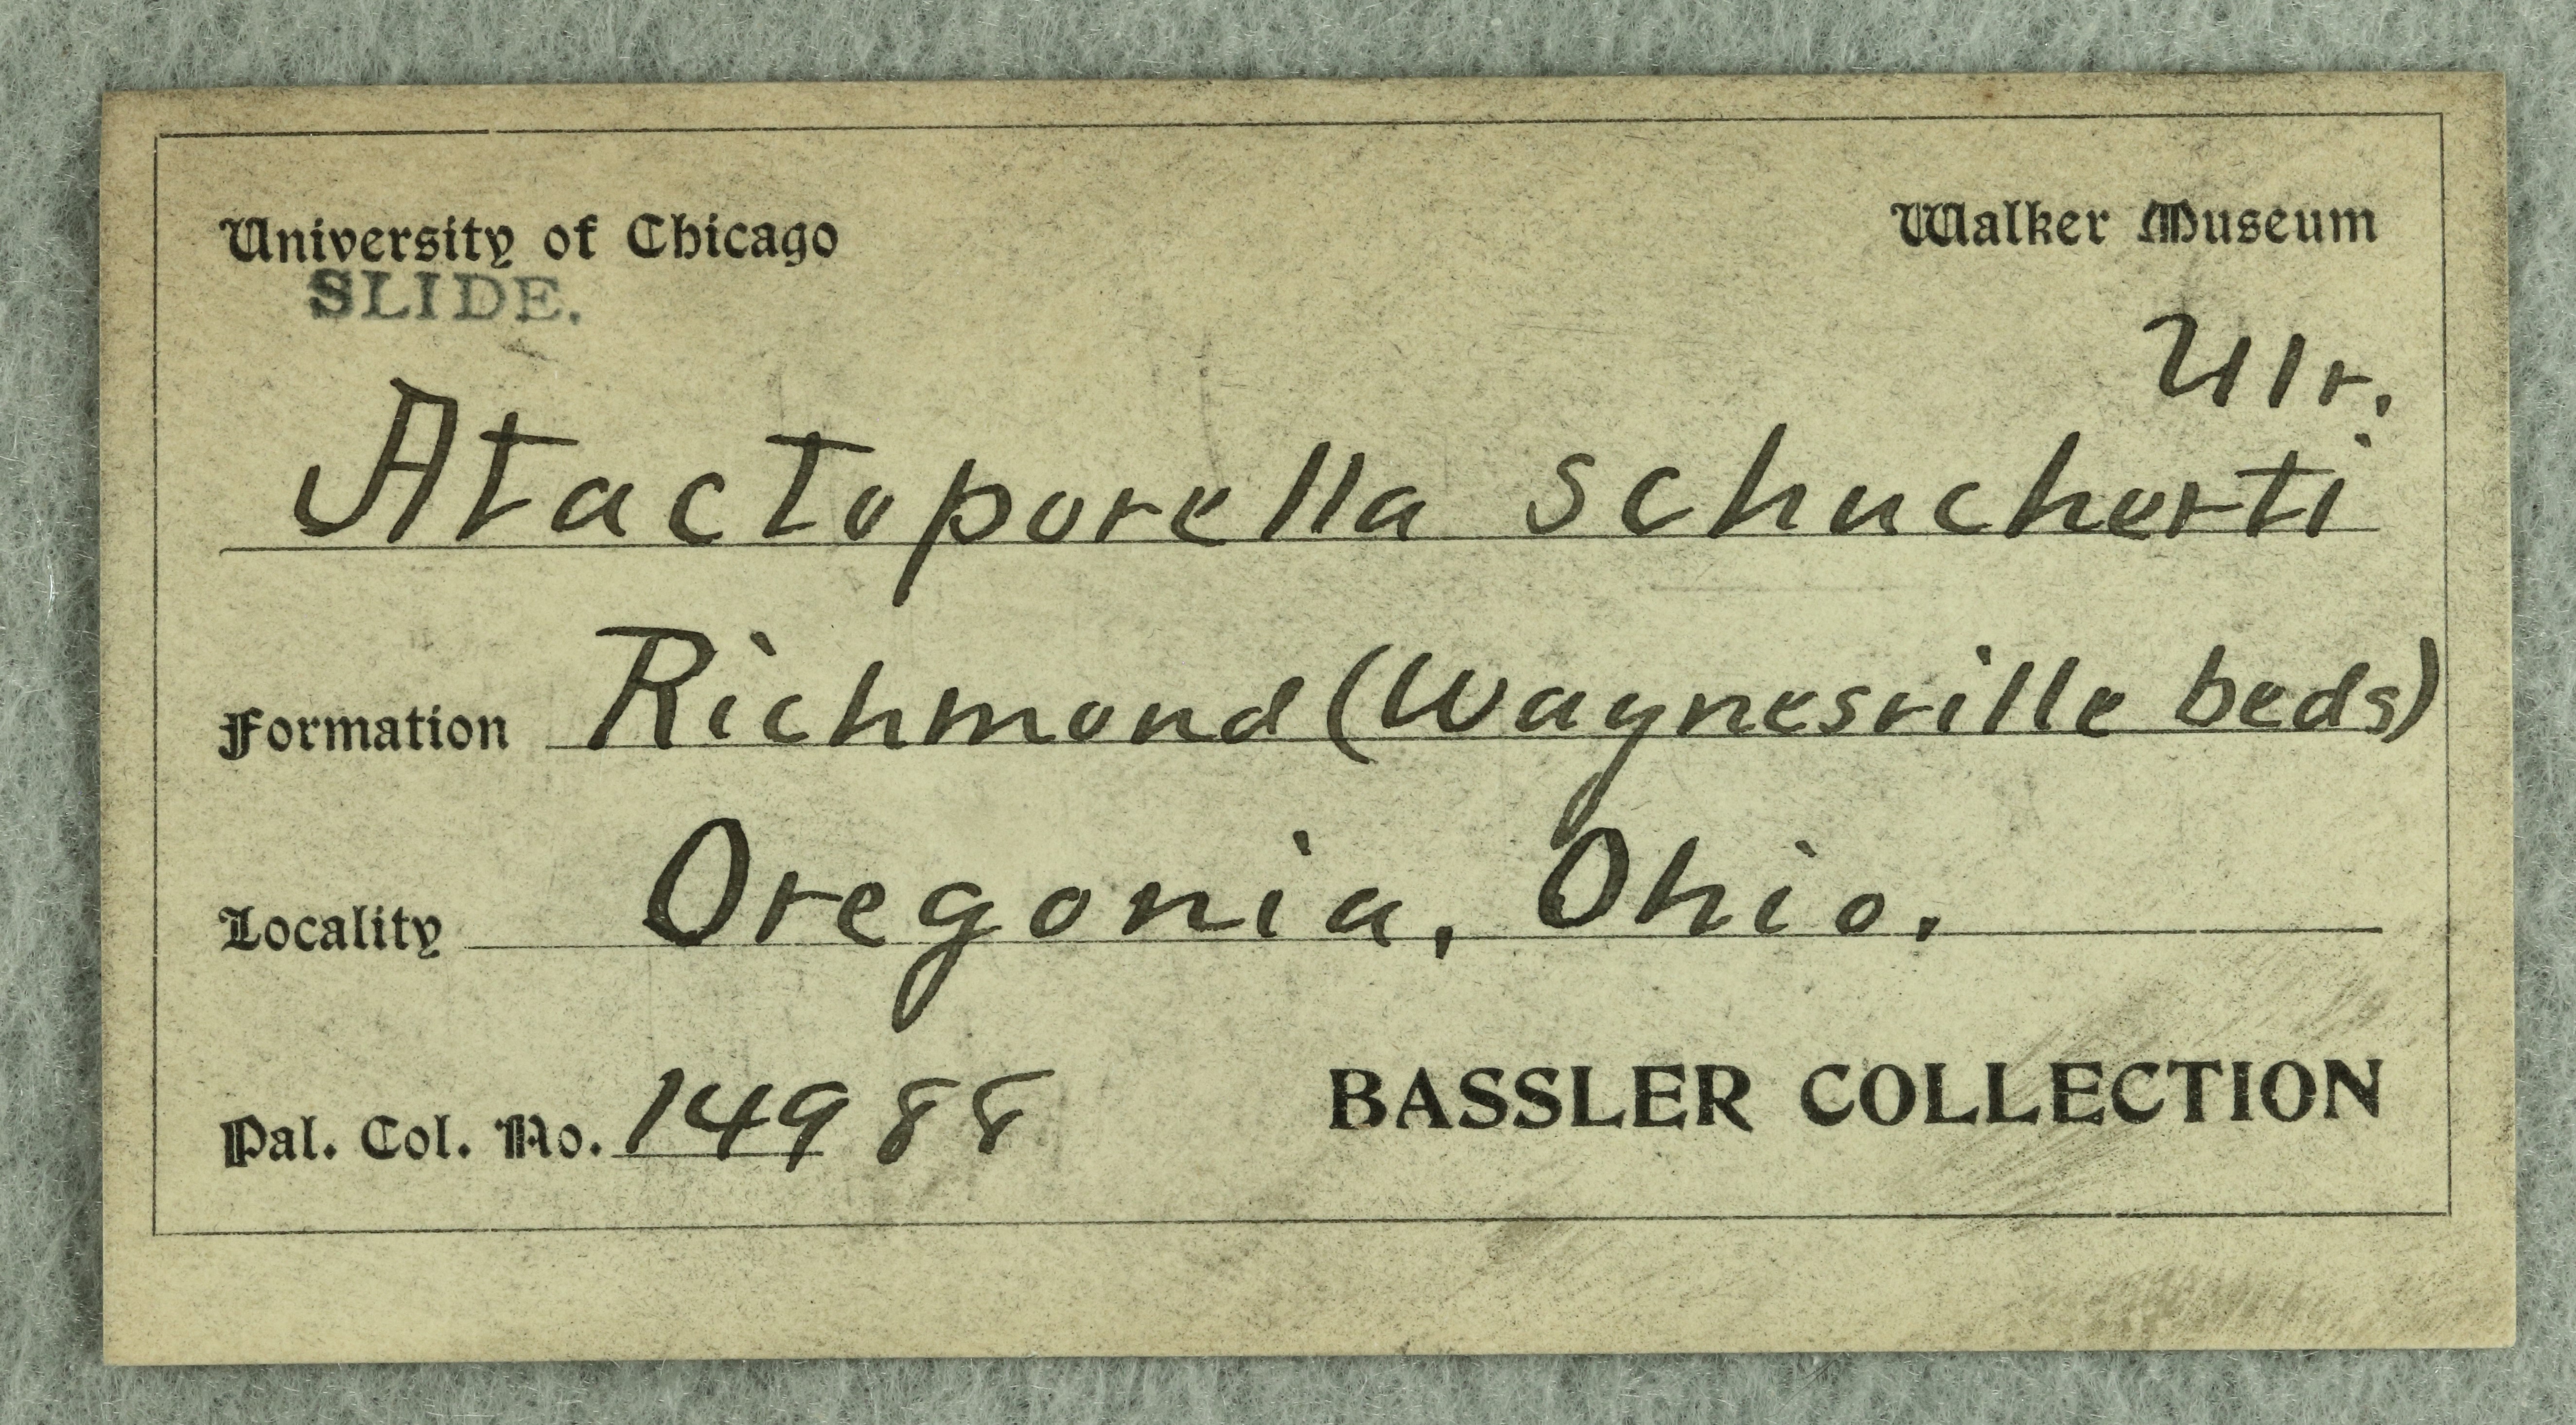 University of Chicago Walker Museum
SLIDE.
Ulr.
Atactoporella schucherti
Formation Richmond (Waynesville beds)
Locality Oregonia, Ohio.
Pal. Col. No. 14988 BASSLER COLLECTION